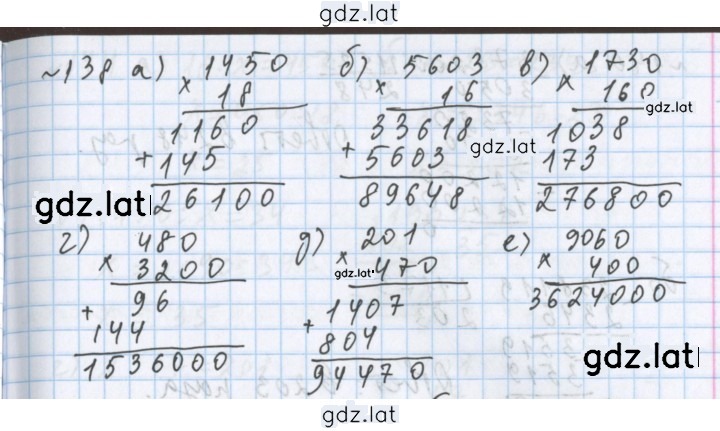 gdz.lat
~138 а) 1450 б) 5603 в) 1730
× 18 × 16 × 160
gdz.lat
1160 33618 1038
gdz.lat
+ 145 + 5603 173
26100 89648 276800
gdz.lat
г) 480 д) 201 е) 9060
× 3200 × 470 × 400
gdz.lat
96 1407 3624000
+ 144 + 804
1536000 94470
gdz.lat
gdz.lat